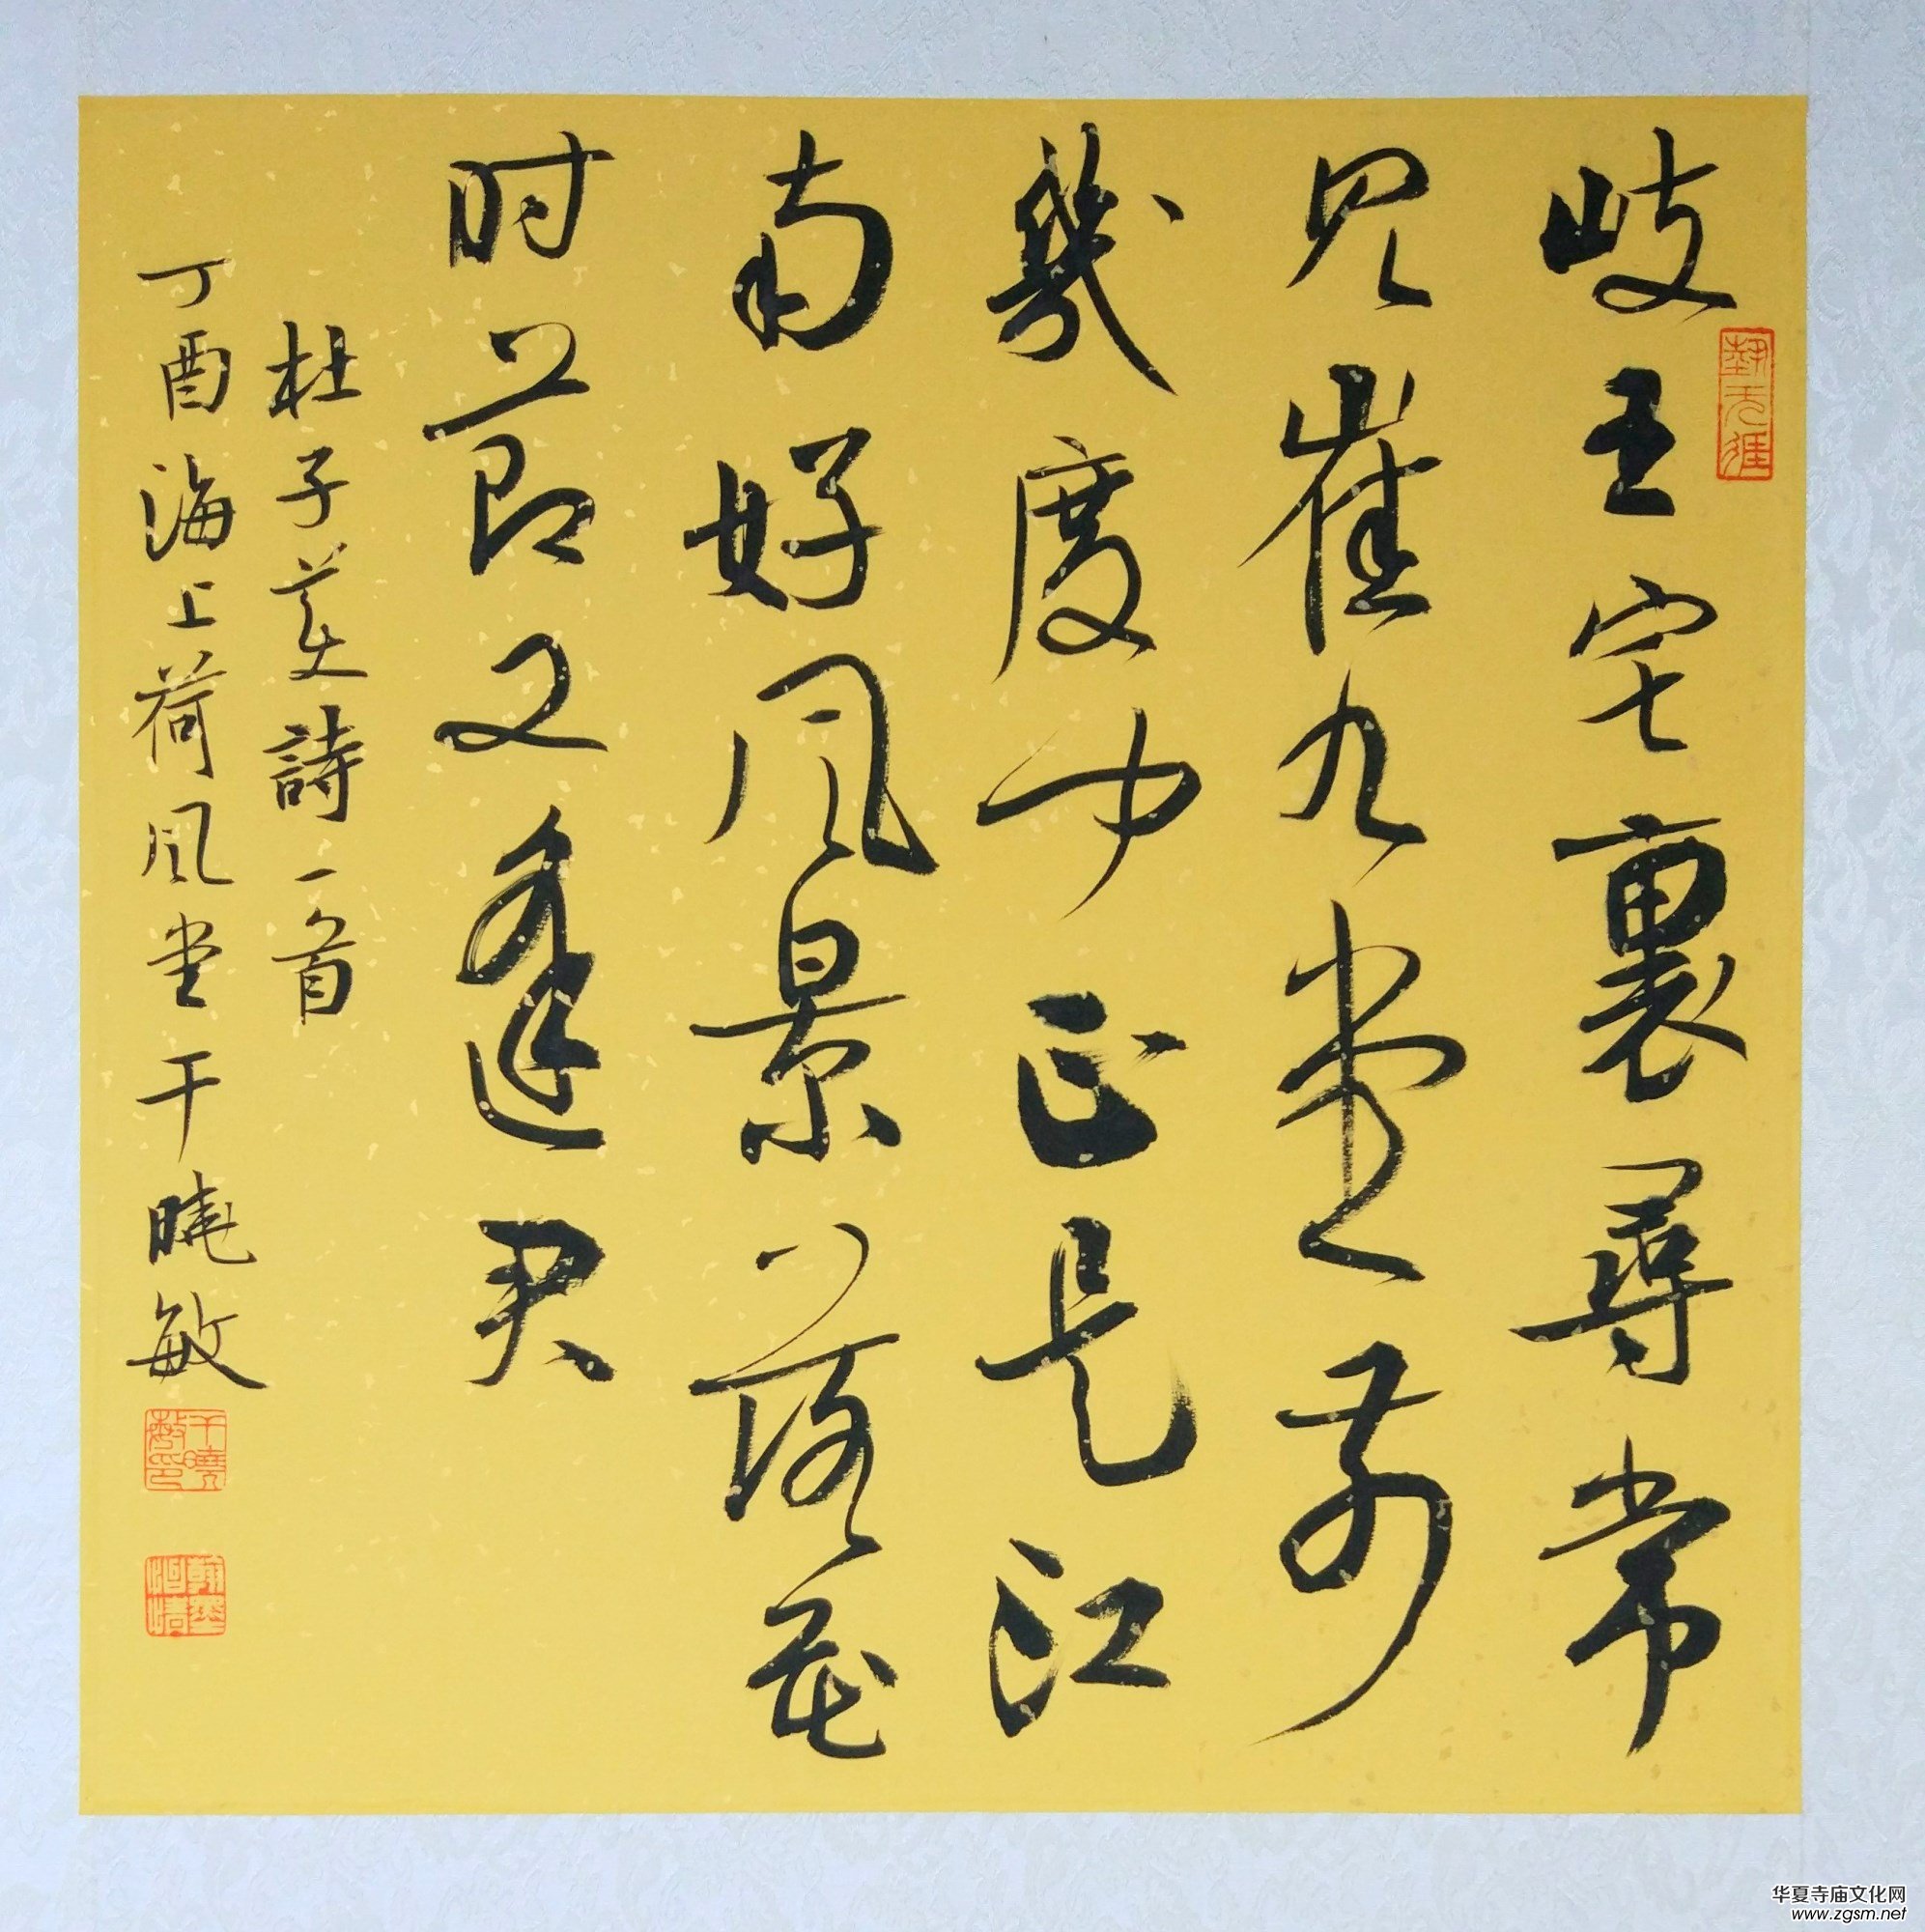 岐王宅裏尋常
見崔九堂前
幾度聞正是江
南好風景落花
时節又逢君
杜子美詩一首
丁酉海上荷風堂干曉敏
干曉敏印
华夏寺庙文化网
www.zgsm.net